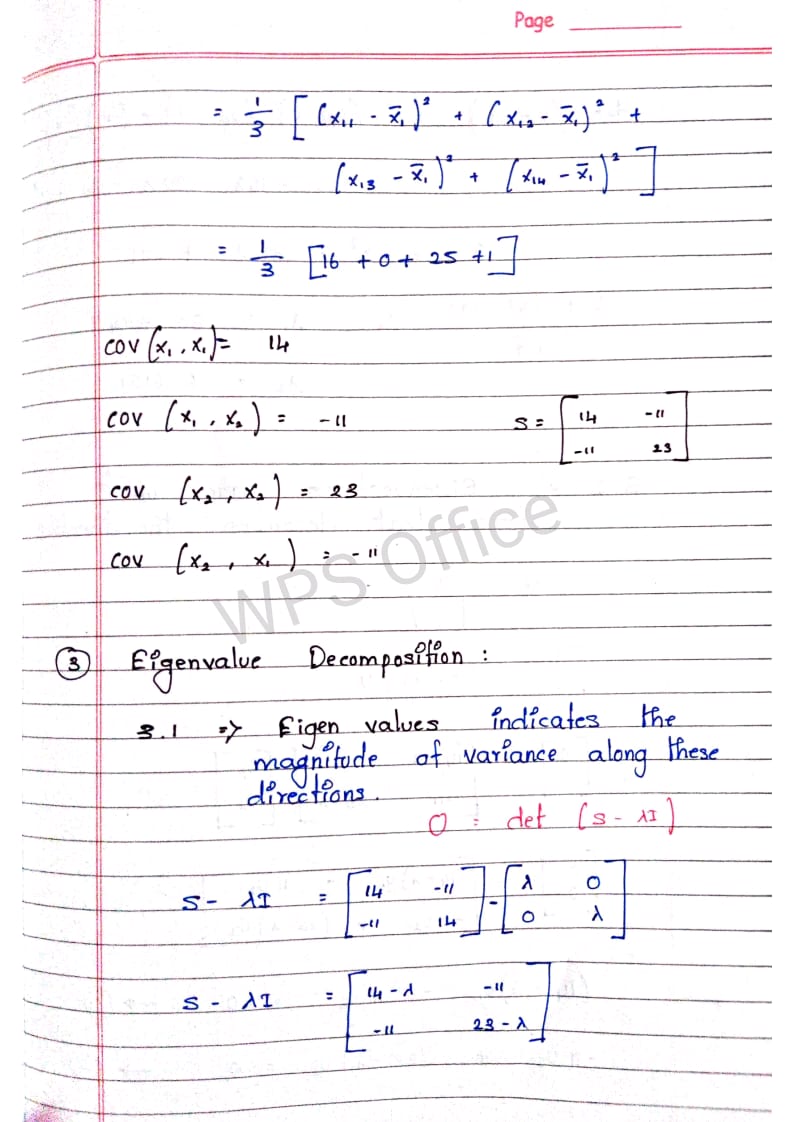 Page
= 1/3 [ (x₁₁ - x̄₁)² + (x₁₂ - x̄₁)² +
(x₁₃ - x̄₁)² + (x₁₄ - x̄₁)² ]
= 1/3 [16 + 0 + 25 + 1]
cov (x₁, x₁) = 14
cov (x₁, x₂) = -11 S = [14 -11
-11 23]
cov (x₂, x₂) = 23
cov (x₂, x₁) = -11
WPS Office
③ Eigenvalue Decomposition :
3.1 => Eigen values indicates the
magnitude of variance along these
directions.
0 = det (S - λI)
S - λI = [14 -11
-11 14] - [λ 0
0 λ]
S - λI = [14 - λ -11
-11 23 - λ]